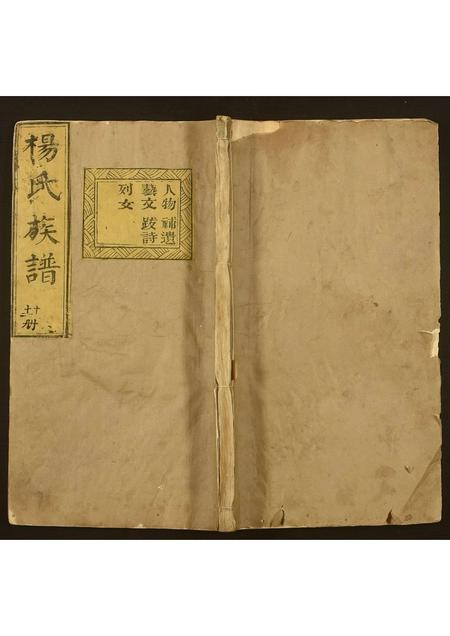 楊氏族譜
册
人物 補遺
藝文 跋詩
列女